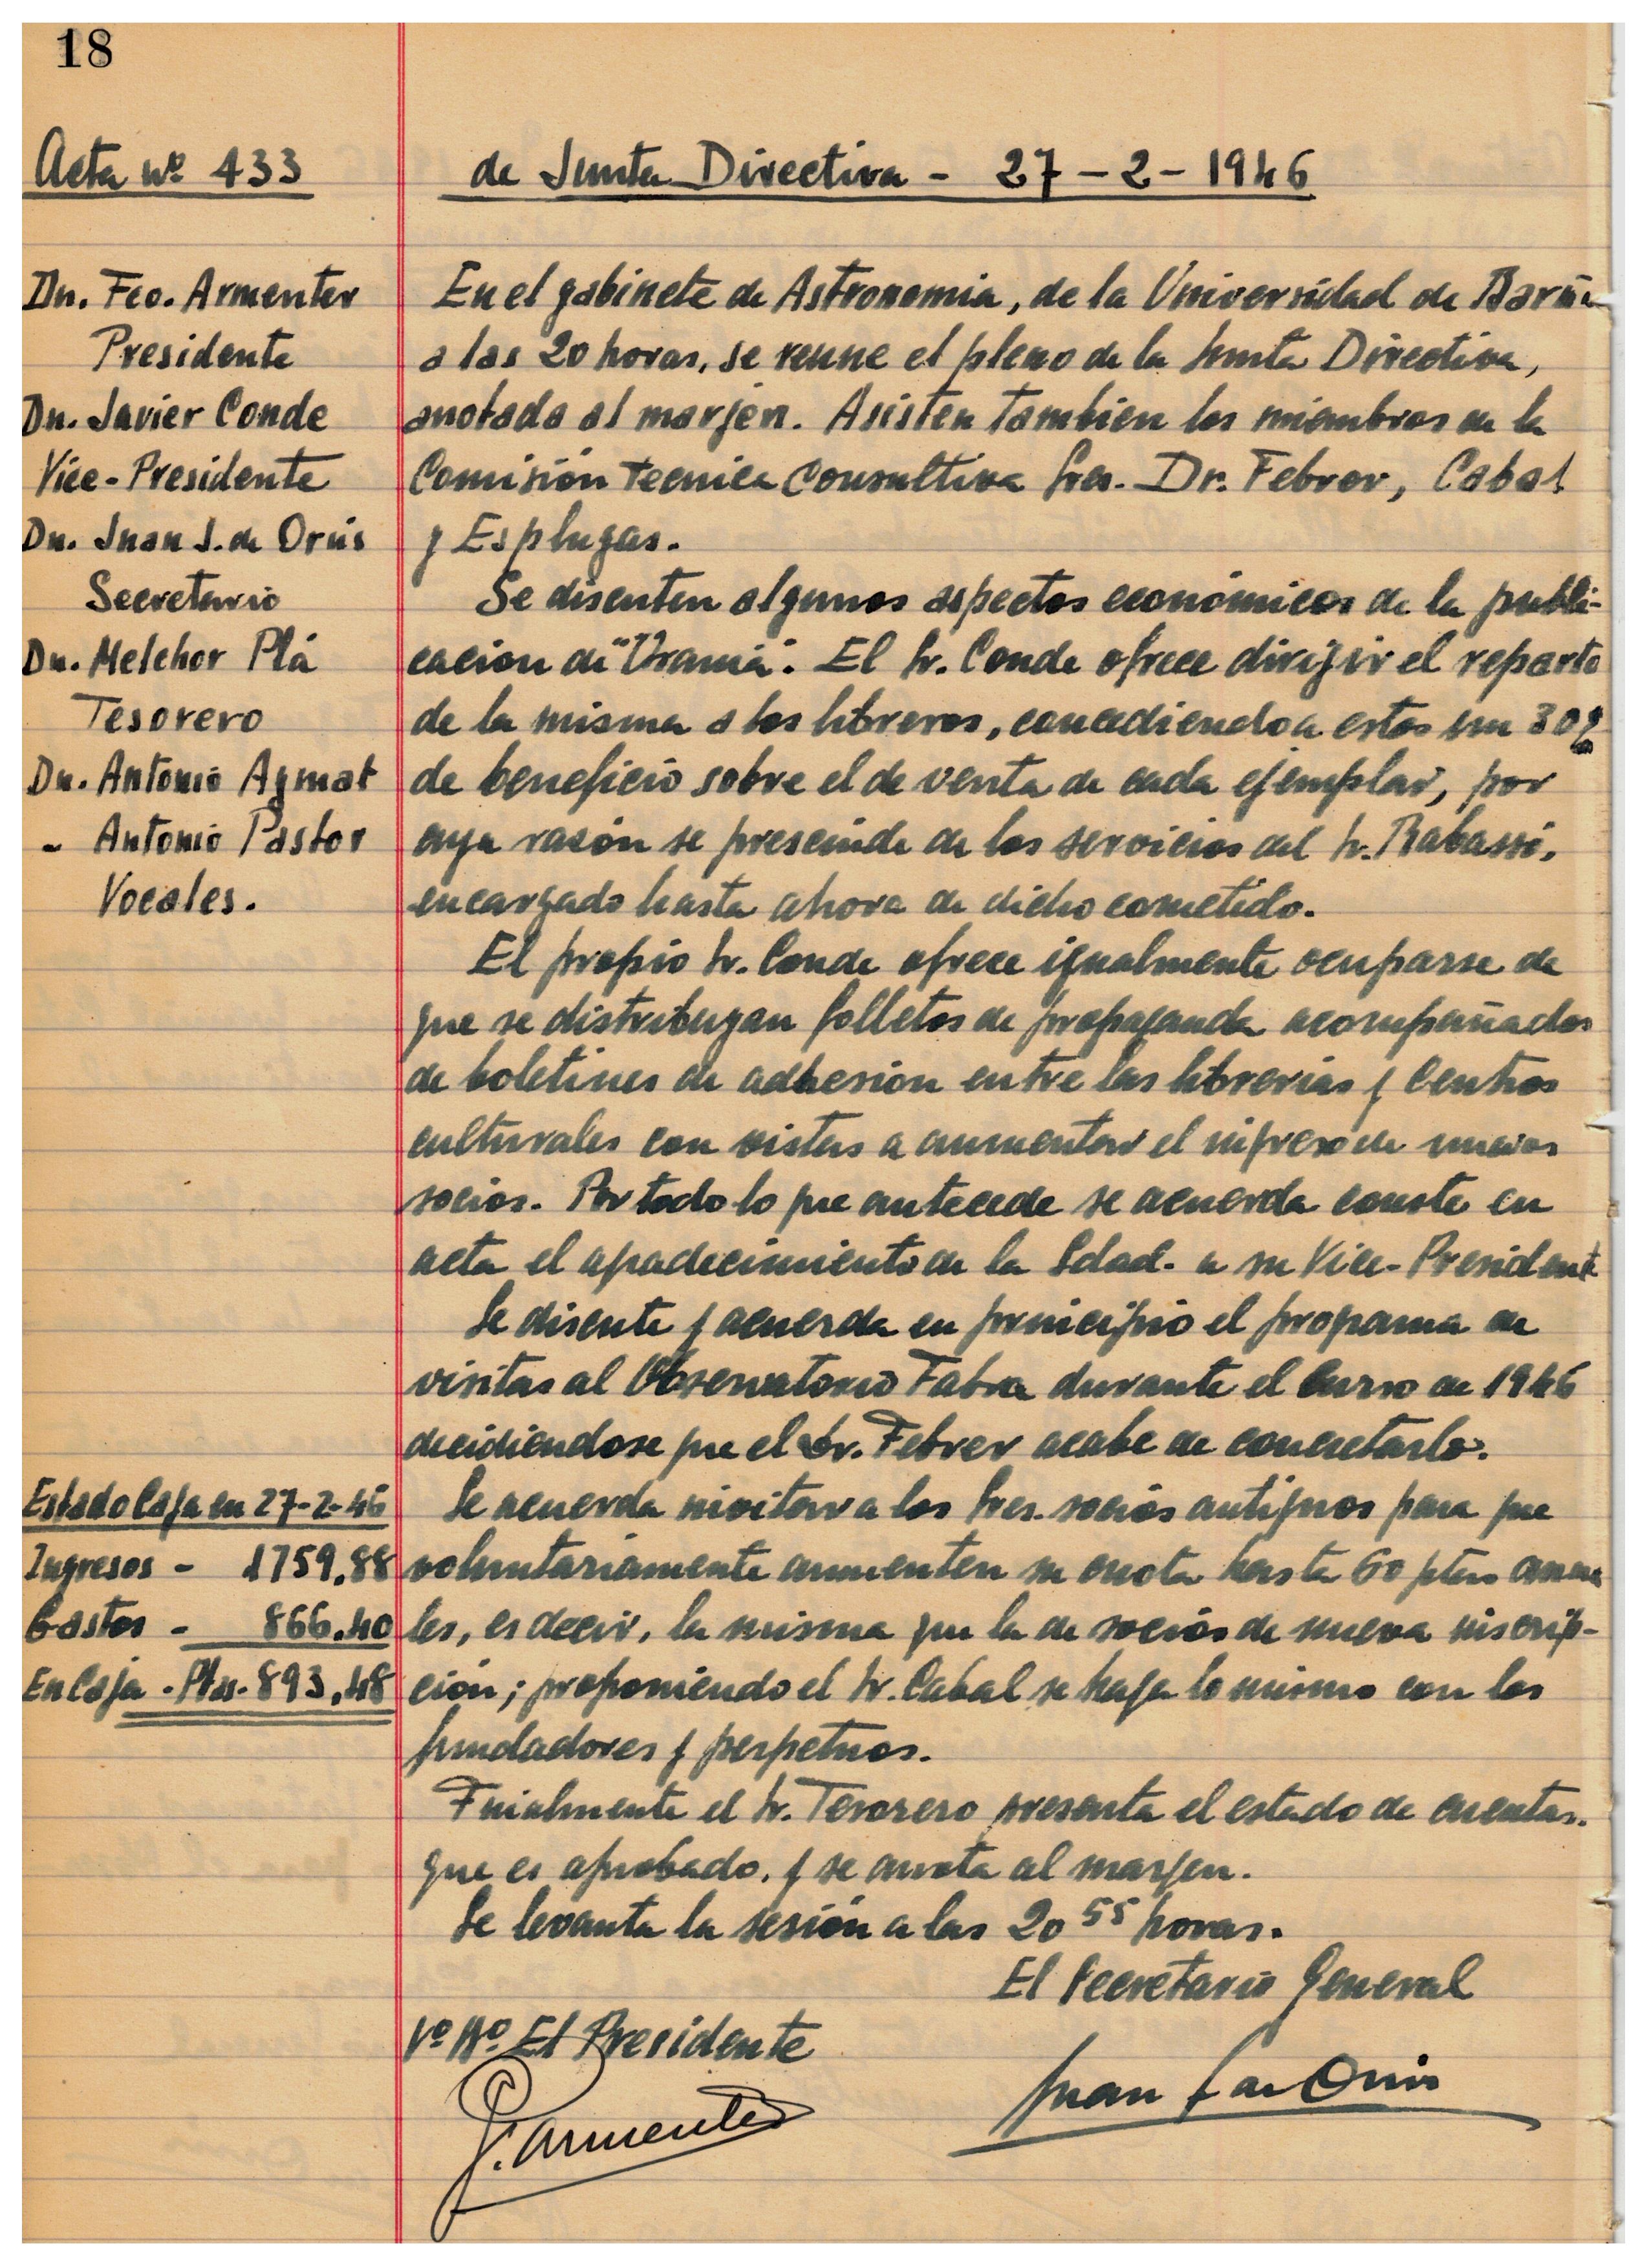 18
Acta nº 433
de Junta Directiva - 27-2-1946
Dn. Fco. Armenter
Presidente
Dn. Javier Conde
Vice-Presidente
Dn. Juan J. de Orús
Secretario
Dn. Melchor Plá
Tesorero
Dn. Antonio Aymat
- Antonio Pastor
Vocales.
En el gabinete de Astronomia, de la Universidad de Barna
a las 20 horas, se reune el pleno de la Junta Directiva,
anotada al margen. Asisten tambien los miembros de la
Comisión Tecnica Consultiva Sres. Dr. Febrer, Cabal
y Esplugas.
Se discuten algunos aspectos económicos de la publi-
cacion de "Urania". El Sr. Conde ofrece dirigir el reparto
de la misma a los libreros, concediendo a estos un 30%
de beneficio sobre el de venta de cada ejemplar, por
cuya razón se prescinde de los servicios del Sr. Rabassi,
encargado hasta ahora de dicho cometido.
El propio Sr. Conde ofrece igualmente ocuparse de
que se distribuyan folletos de propaganda acompañados
de boletines de adhesion entre las librerias y Centros
culturales con vistas a aumentar el ingreso de nuevos
socios. Por todo lo que antecede se acuerda conste en
acta el agradecimiento de la Sdad. a su Vice-Presidente
Se discute y acuerda en principio el programa de
visitas al Observatorio Fabra durante el Curso de 1946
decidiendose que el Sr. Febrer acabe de concretarlo.
Se acuerda invitar a los Sres. socios antiguos para que
voluntariamente aumenten su cuota hasta 60 ptas anua
les, es decir, la misma que la de socios de nueva inscrip-
ción; proponiendo el Sr. Cabal se haga lo mismo con los
fundadores y perpetuos.
Finalmente el Sr. Tesorero presenta el estado de cuentas.
que es aprobado, y se anota al margen.
Se levanta la sesión a las 20 55 horas.
Estado Caja en 27-2-46
Ingresos - 1759.88
Gastos - 866.40
En Caja - Ptas. 893,48
El Secretario General
Vº Bº El Presidente
Juan J. de Orús
F. Armenter